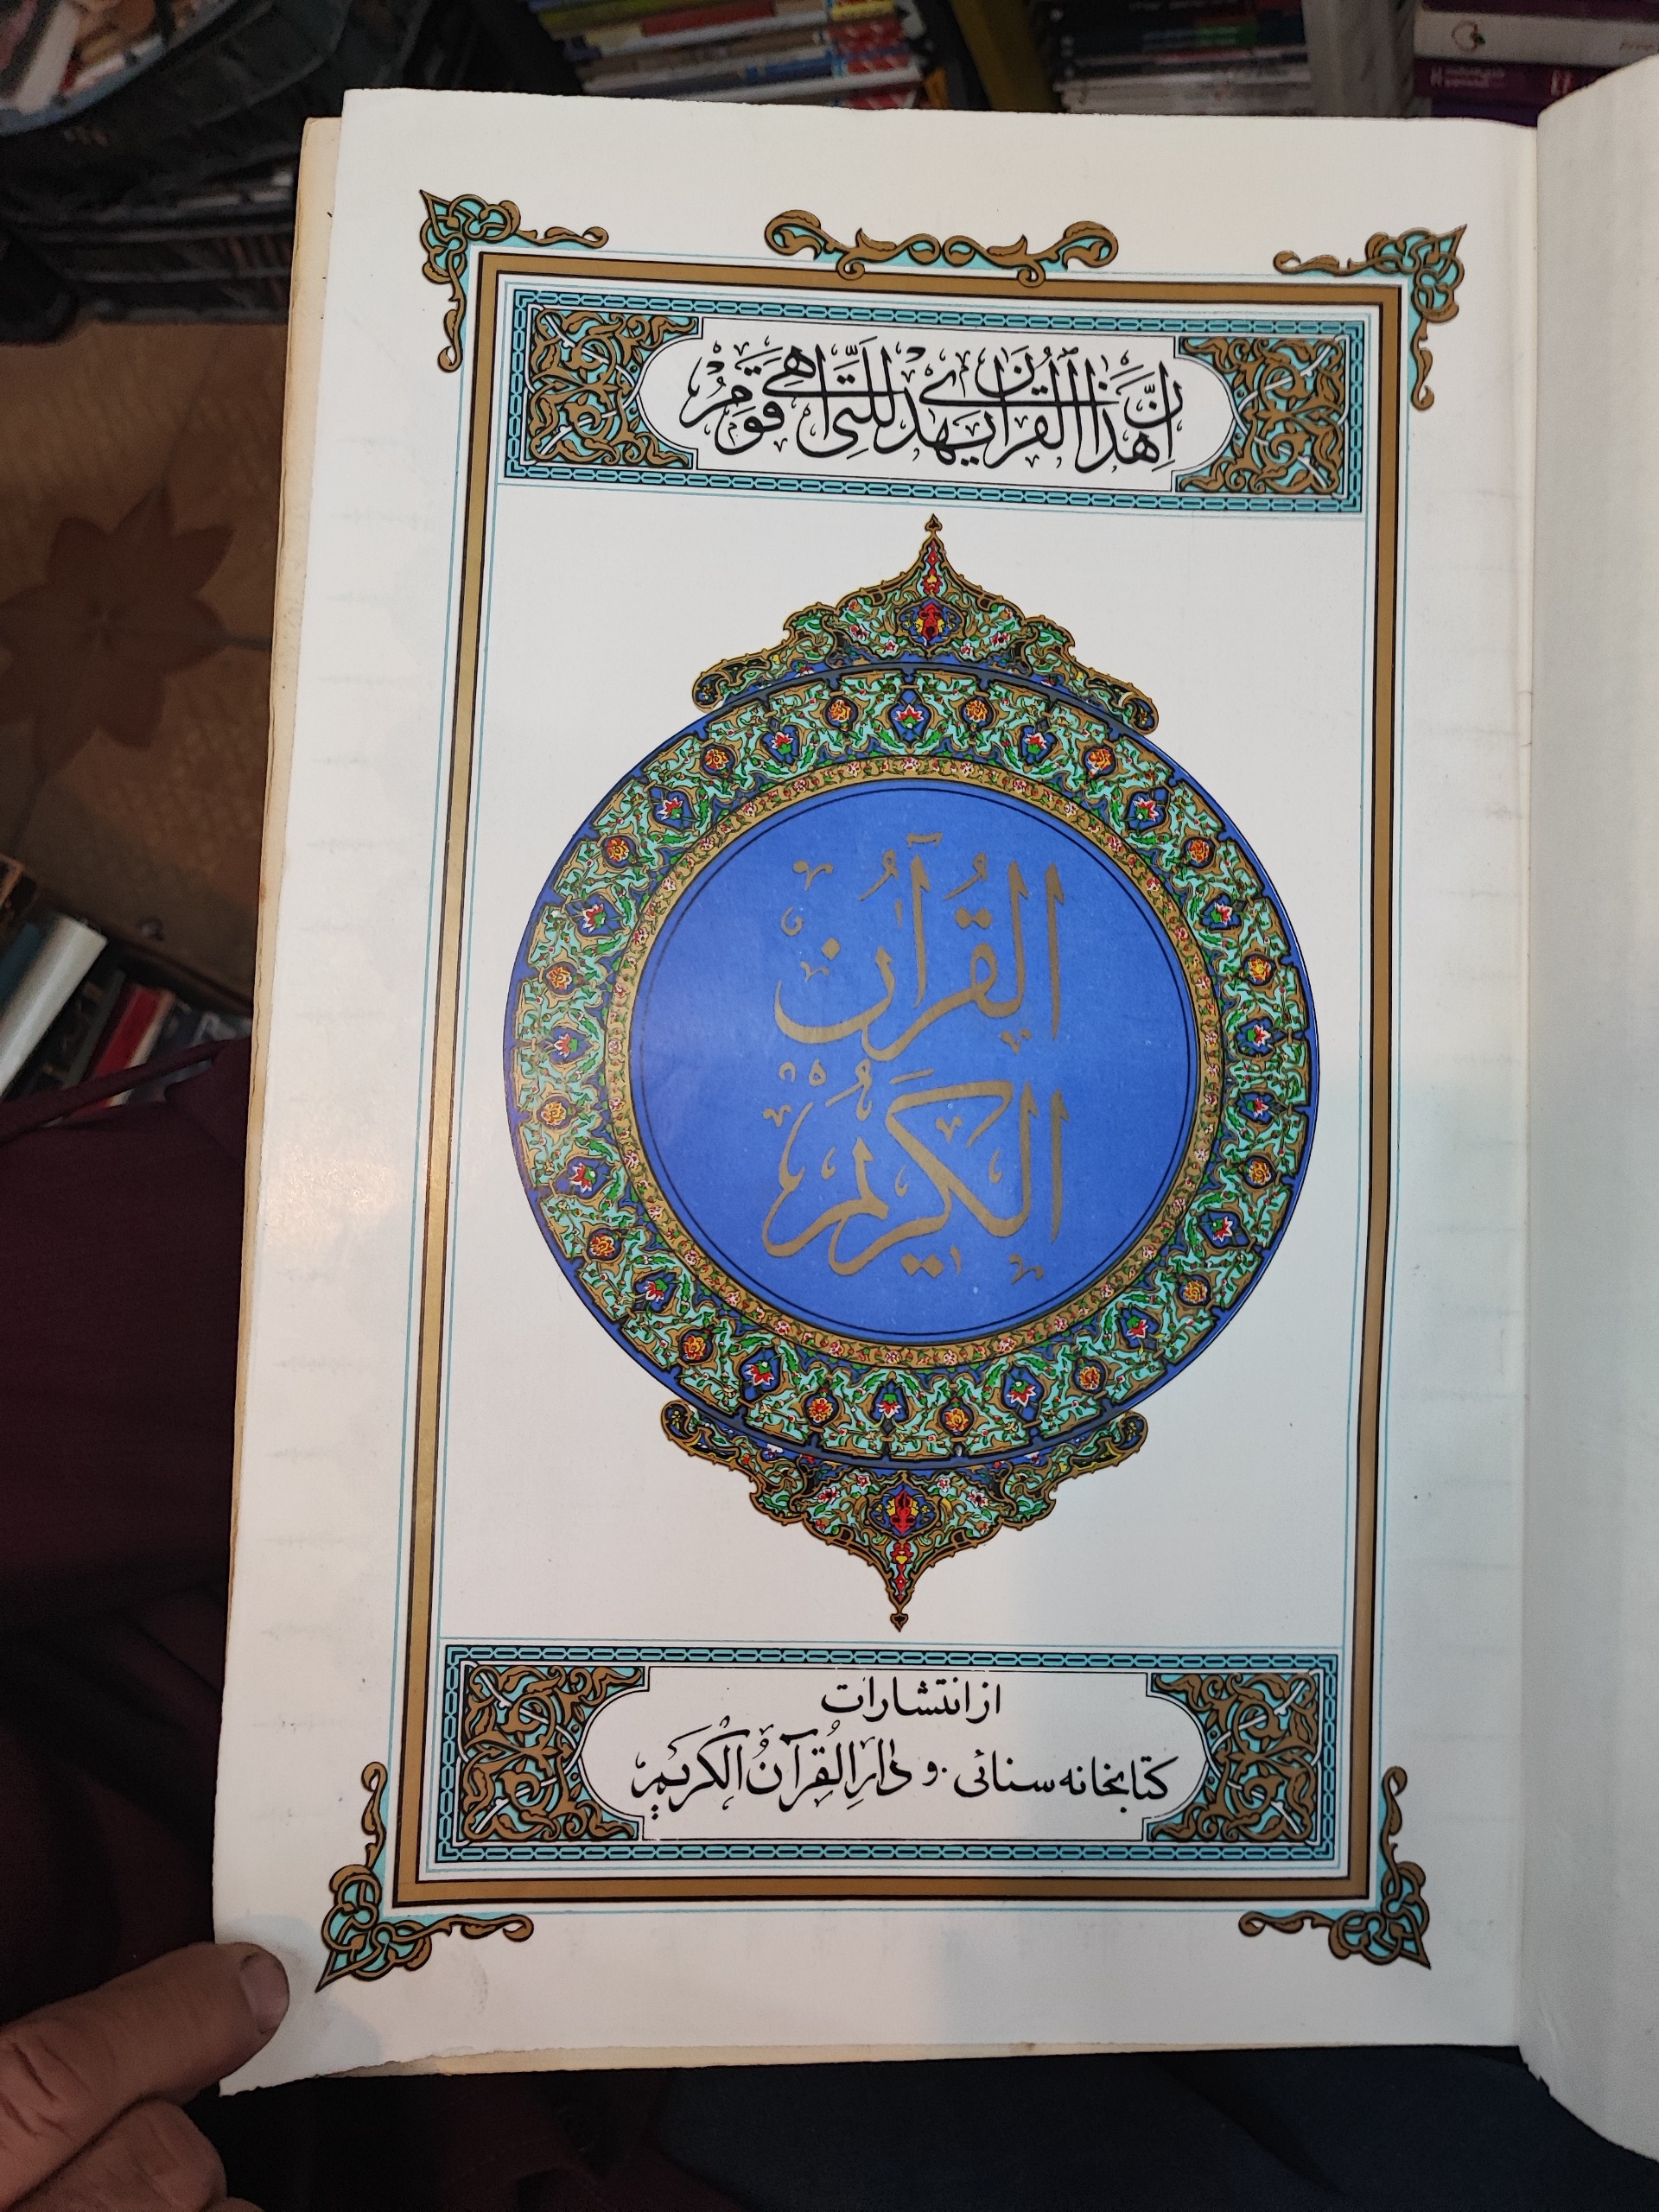 اِنَّ هٰذَا الْقُرْاٰنَ یَهْدی لِلَّتی هِیَ اَقْوَمُ
اَلْقُرْآنُ
الْکَریمُ
از انتشارات
کتابخانه سنائی . و دٰارُ الْقُرْآنِ الْکَریم